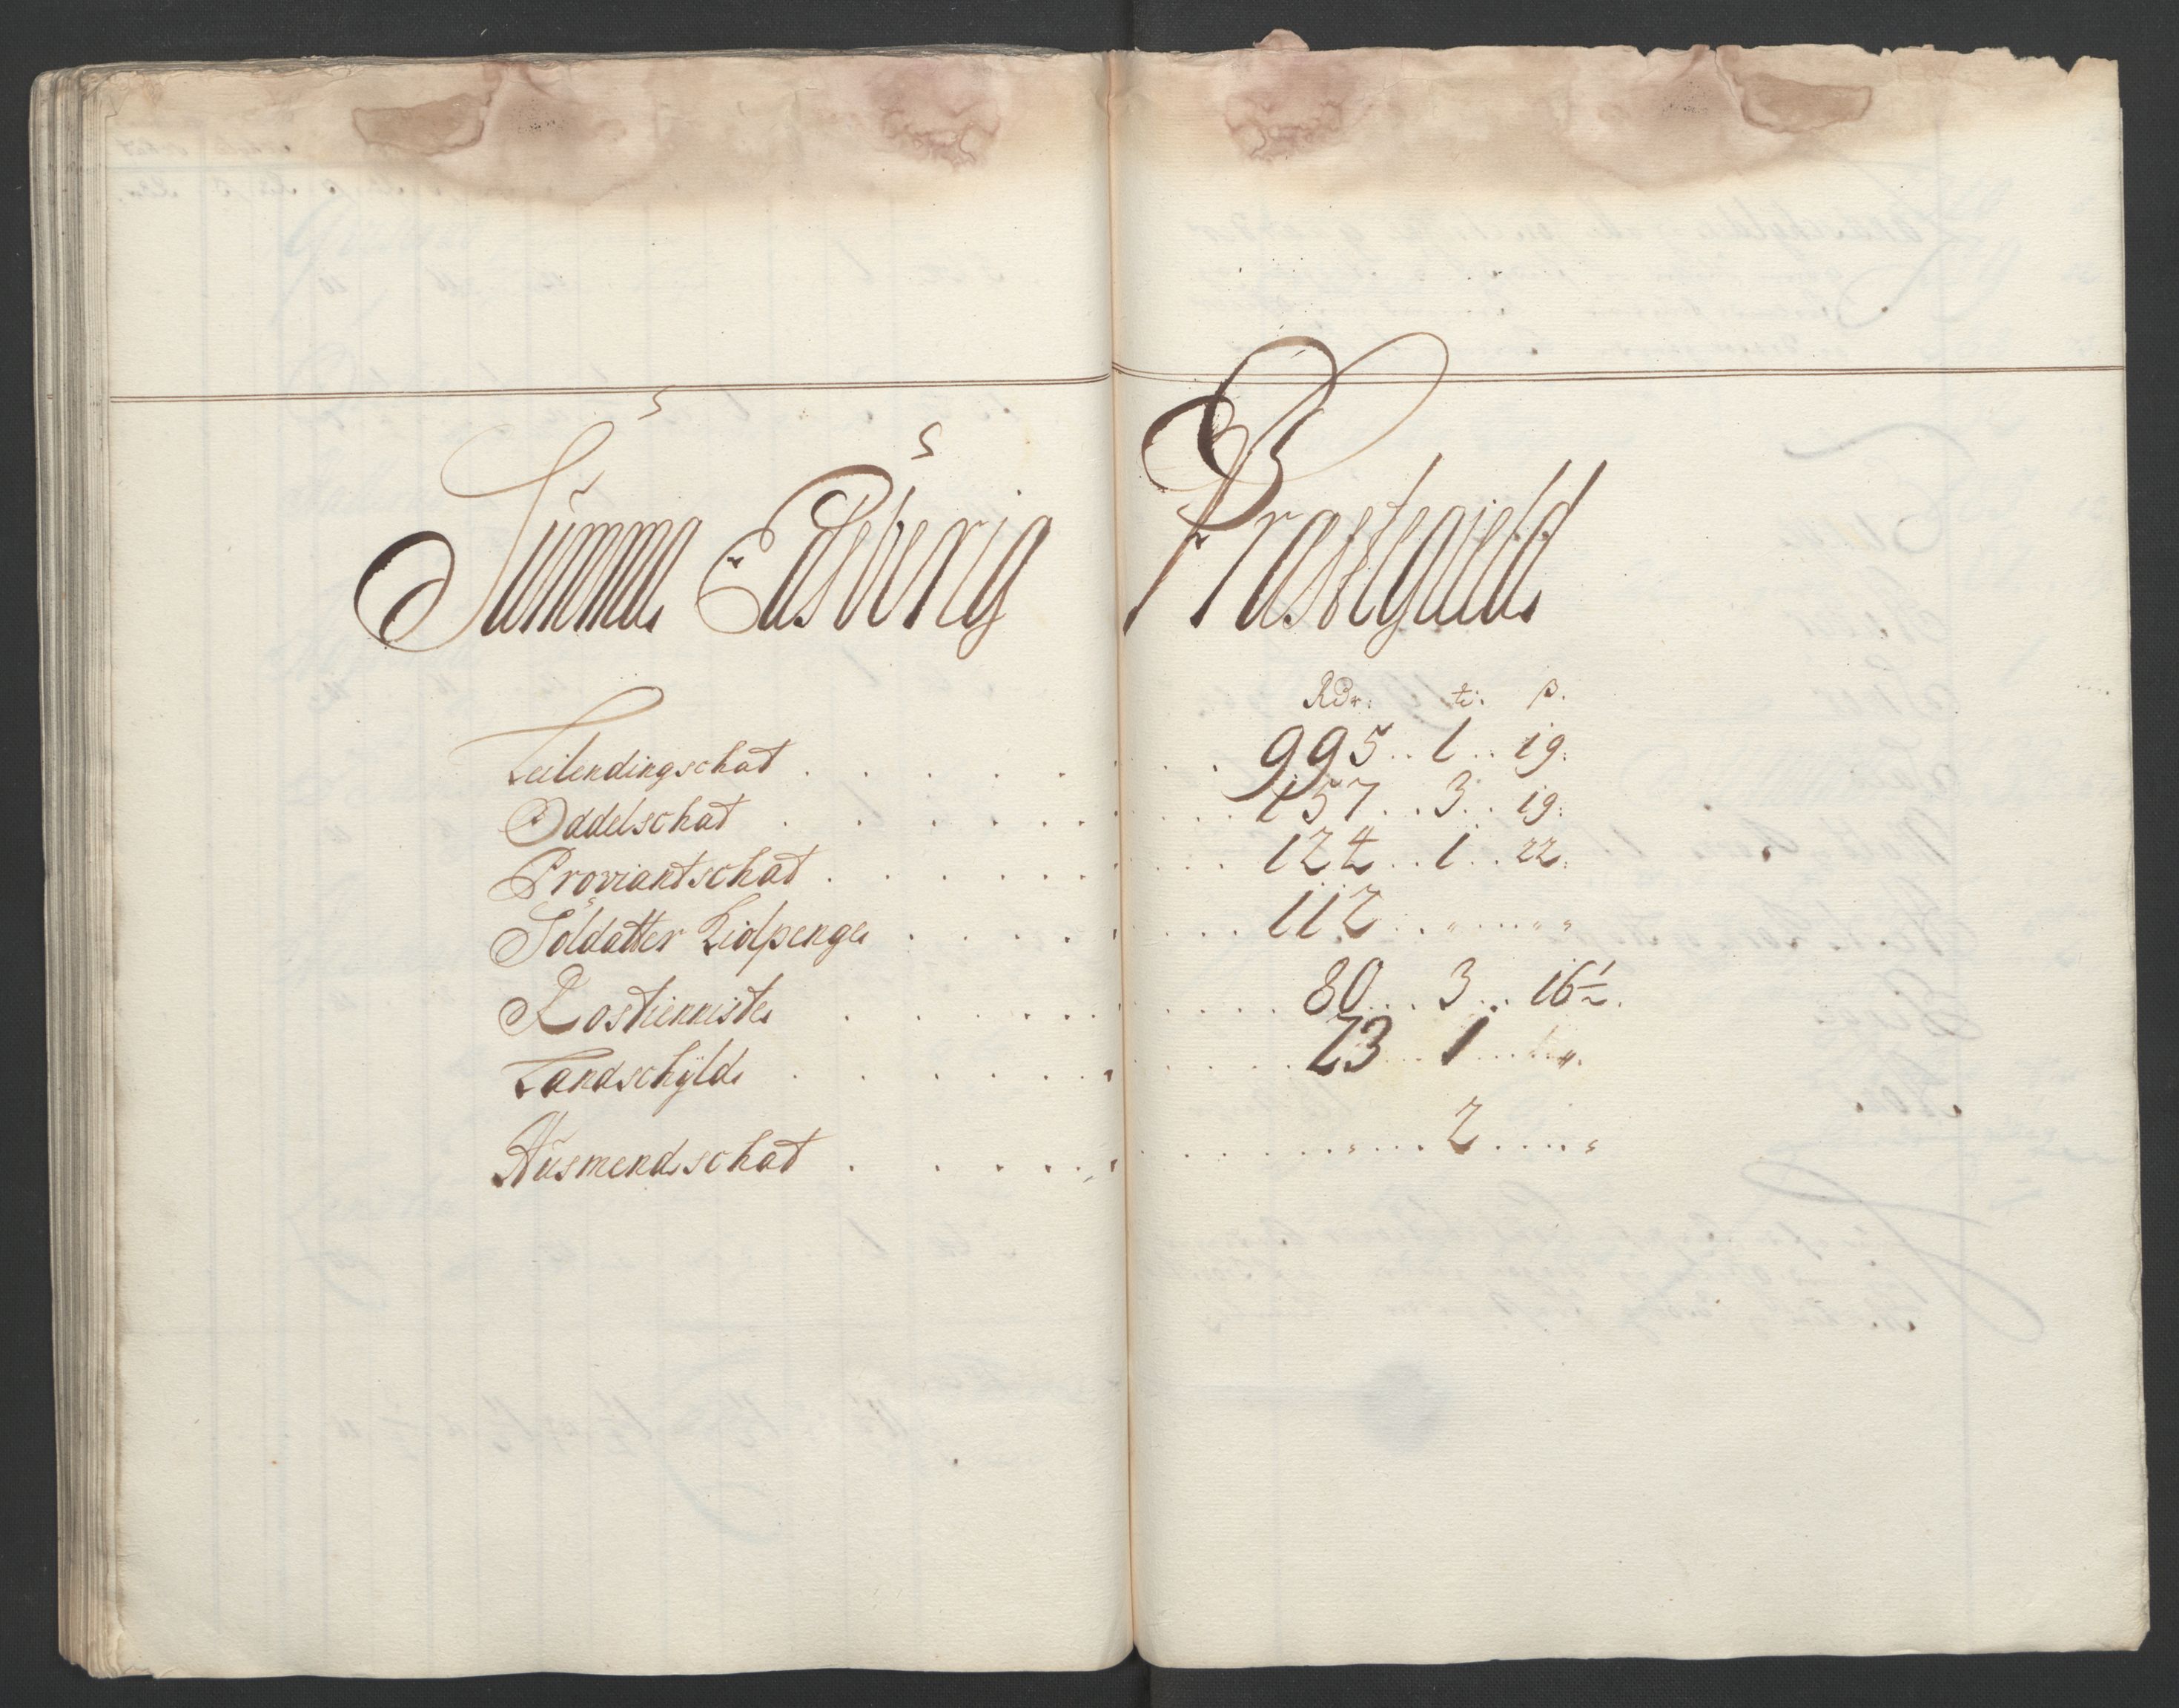 Summa Edsberig Præstegield
Rdr: ti: ß.
Leilendingschat . . . . . . 995 .. 1 .. 19:
Oddelschat . . . . . . 157 .. 3 .. 19:
Proviantschat . . . . . . 124 .. 1 .. 22:
Soldatter Leidpenge . . . . . . 112 .. „ .... „
Rostienniste . . . . . . 80 .. 3 .. 16½.
Landschyld . . . . . . 23 .. 1 .... „.
Husmendschat . . . . . . „ .... 2 .... „